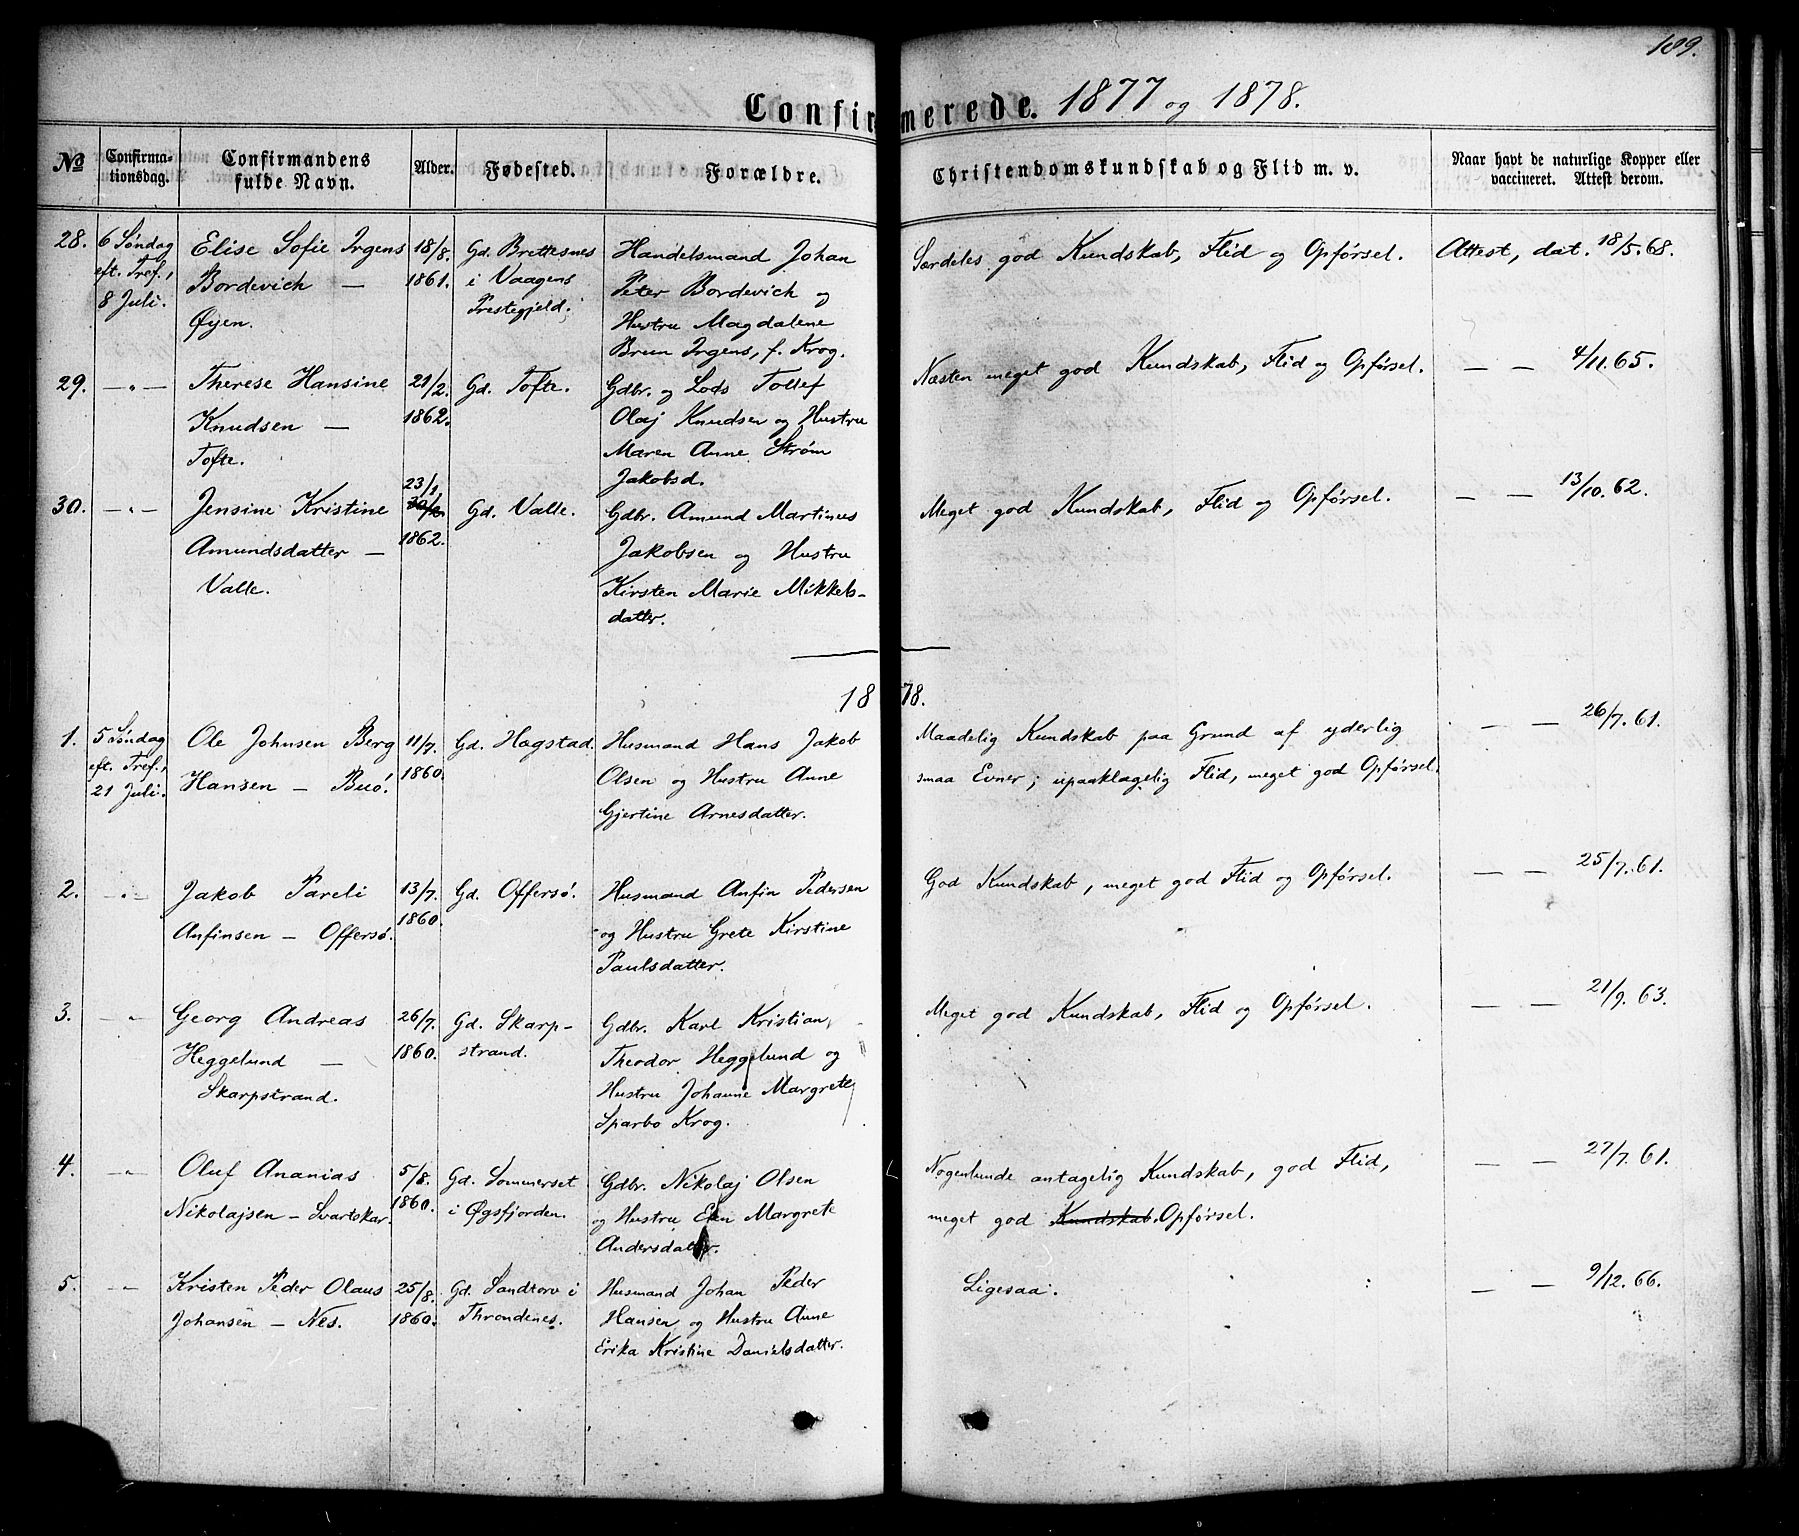 109.
Confirmerede. 1877 og 1878.
No
Confirma-
tionsdag.
Confirmandens
fulde Navn.
Alder.
Fødested.
Forældre.
Christendomskundskab og Flid m. v.
Naar havt de naturlige Kopper eller
vaccineret. Attest derom.
28. 6 Søndag Elise Sofie Irgens 18/8. Gd. Brettesnes Handelsmand Johan Særdeles god Kundskab, Flid og Opførsel. Attest, dat. 18/5. 68.
eft. Tref., Bordevich — 1861. i Vaagens Peter Bordevich og
8 Juli. Øyen. Prestegjeld. Hustru Magdalene
Bruun Irgens, f. Krog.
29. —„— Therese Hansine 21/2. Gd. Tofte. Gdbr. og Lods Tollef Næsten meget god Kundskab, Flid og Opførsel. — — 4/11. 65.
Knudsen — 1862. Olaj Knudsen og Hustru
Tofte. Maren Anne Strøm
Jakobsd.
30. —„— Jensine Kristine 23/1 Gd. Valle. Gdbr. Amund Martinus Meget god Kundskab, Flid og Opførsel. — — 13/10. 62.
Amundsdatter — 1862. Jakobsen og Hustru
Valle. Kirsten Marie Mikkels-
datter.
1878.
1. 5 Søndag Ole Johnsen Berg 11/7. Gd. Hagstad. Husmand Hans Jakob Maadelig Kundskab paa Grund af yderlig — — 26/7. 61.
eft. Tref., Hansen — Buó. 1860. Olsen og Hustru Anne smaa Evner; upaaklagelig Flid, meget god Opførsel.
21 Juli. Gjertine Arnesdatter.
2. —„— Jakob Pareli 13/7. Gd. Offersó. Husmand Anfin Pedersen God Kundskab, meget god Flid og Opførsel. — — 25/7. 61.
Anfinsen — Offersó. 1860. og Hustru Grete Kirstine
Paulsdatter.
3. —„ Georg Andreas 26/7. Gd. Skarp- Gdbr. Karl Kristian Meget god Kundskab, Flid og Opførsel. — — 21/9. 63.
Heggelund — 1860. strand. Theodor Heggelund og
Skarpstrand. Hustru Johanne Margrete
Sparbo Krog.
4. —„ Oluf Ananias 5/8. Gd. Sommerset Gdbr. Nikolaj Olsen Nogenlunde antagelig Kundskab, god Flid, — — 27/7. 61.
Nikolajsen — Svartskar. 1860. i Øgsfjorden. og Hustru Elen Margrete meget god Kundskab. Opførsel.
Andersdatter.
5. —„ Kristen Peder Olaus 25/8. Gd. Sandtorv i Husmand Johan Peder Ligesaa. — — 9/12. 66.
Johansen — Nes. 1860. Throndenes. Hansen og Hustru Anne
Erika Kristine Danielsdatter.